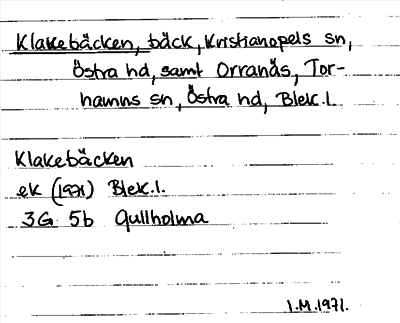 Klakebäcken, bäck, Kristianopels sn,
Östra hd, samt Orranäs, Tor-
hamns sn, Östra hd, Blek.l.
Klakebäcken
ek (1971) Blek.l.
3G 5b Gullholma
I.M.1971.